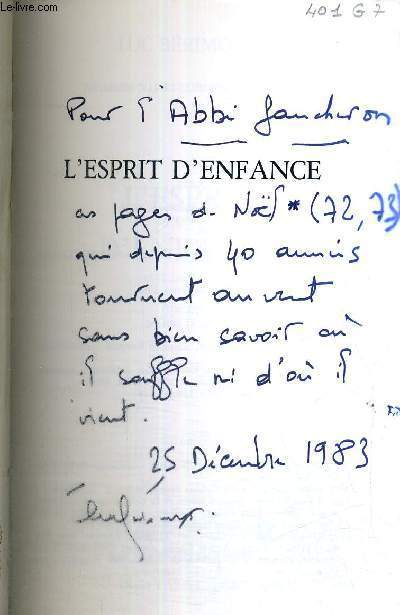 Le-livre.com
401 G 7
Pour l'Abbé Gaucheron
L'ESPRIT D'ENFANCE
ces pages de Noël * (72, 73)
qui depuis 40 années
tournent au vent
sans bien savoir où
il souffle ni d'où il
vient.
25 Décembre 1983